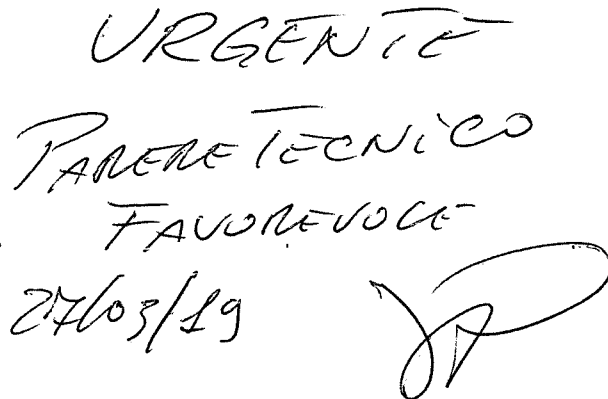 URGENTE
PARERE TECNICO
FAVOREVOLE
27/03/19